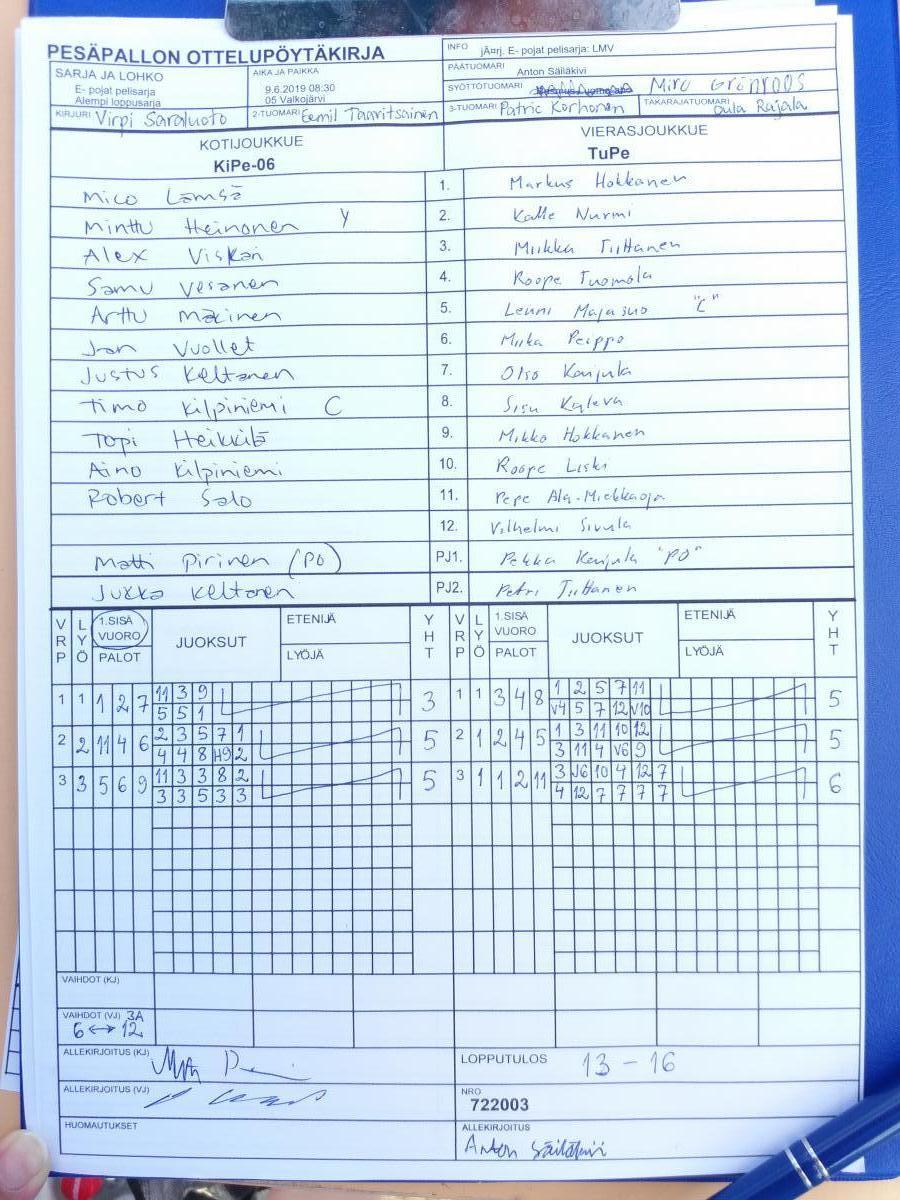 PESÄPALLON OTTELUPÖYTÄKIRJA
INFO jÃ¤rj. E- pojat pelisarja: LMV
SARJA JA LOHKO
E- pojat pelisarja
Alempi loppusarja
AIKA JA PAIKKA
9.6.2019 08:30
05 Valkojärvi
PÄÄTUOMARI Anton Säiläkivi
SYÖTTÖTUOMARI Miro Grönroos
KIRJURI Virpi Saraluoto
2-TUOMARI Eemil Taavitsainen
3-TUOMARI Patric Korhonen
TAKARAJATUOMARI Rajala
KOTIJOUKKUE
KiPe-06
VIERASJOUKKUE
TuPe
Mico Lämsä 1. Markus Hokkanen
Minttu Heinonen Y 2. Kalle Nurmi
Alex Viskari 3. Miikka Tiittanen
Samu Vesanen 4. Roope Tuomola
Arttu Mäkinen 5. Lenni Majasuo "C"
Jan Vuollet 6. Miika Peippo
Justus Keltanen 7. Otso Kanjula
Timo Kilpiniemi C 8. Sisu Kaleva
Topi Heikkilä 9. Mikko Hokkanen
Aino Kilpiniemi 10. Roope Liski
Robert Salo 11. Pepe Ala-Mickkaoja
12. Vilhelmi Sivula
Matti Pirinen (PO) PJ1. Pekka Kanjula "PO"
Jukka Keltanen PJ2. Petri Tiittanen
VRP LYÖ 1.SISÄ VUORO PALOT JUOKSUT ETENIJÄ LYÖJÄ YHT VRP LYÖ 1.SISÄ VUORO PALOT JUOKSUT ETENIJÄ LYÖJÄ YHT
1 1 1 2 7 11 3 9 3 1 1 3 4 8 1 2 5 7 11 5
5 5 1 V4 5 7 12 V10
2 2 11 4 6 2 3 5 7 1 5 2 1 2 4 5 1 3 11 10 12 5
4 4 8 H9 2 3 11 4 V6 9
3 3 5 6 9 11 3 3 8 2 5 3 1 1 2 11 3 J6 10 4 12 7 6
3 3 5 3 3 4 12 7 7 7 7
VAIHDOT (KJ)
VAIHDOT (VJ) 3A
6 ↔ 12
ALLEKIRJOITUS (KJ)
LOPPUTULOS 13 - 16
ALLEKIRJOITUS (VJ)
NRO
722003
HUOMAUTUKSET
ALLEKIRJOITUS
Anton Säiläkivi